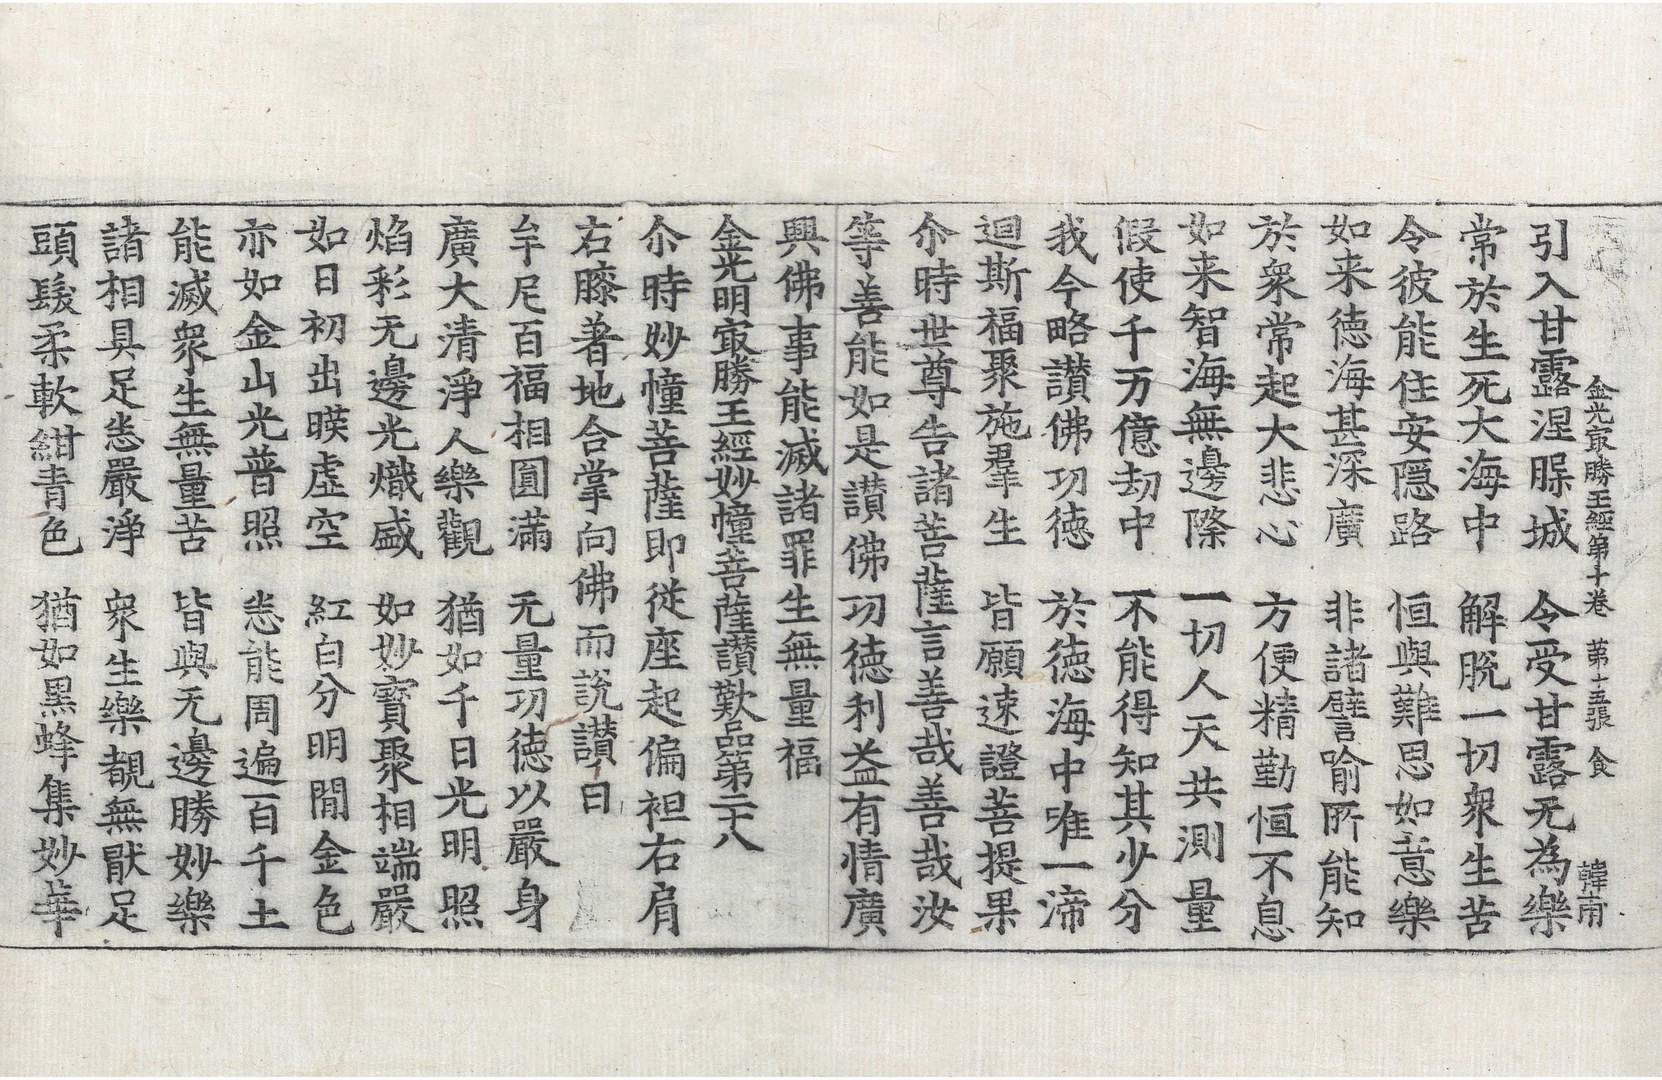 金光㝡勝王經第十卷　第十五張　食　韓甫
引入甘露涅槃城　令受甘露无為樂
常於生死大海中　解脫一切衆生苦
令彼能住安隱路　恒與難思如意樂
如来徳海甚深廣　非諸譬喻所能知
於衆常起大悲心　方便精勤恒不息
如来智海無邊際　一切人天共測量
假使千万億劫中　不能得知其少分
我今略讃佛功徳　於徳海中唯一渧
迴斯福聚施羣生　皆願速證菩提果
尒時世尊告諸菩薩言善哉善哉汝
等善能如是讃佛功徳利益有情廣
興佛事能滅諸罪生無量福
金光明㝡勝王經妙幢菩薩讃歎品第二十八
尒時妙幢菩薩即從座起偏袒右肩
右膝著地合掌向佛而說讃曰
牟尼百福相圓滿　无量功徳以嚴身
廣大清淨人樂觀　猶如千日光明照
焰彩无邊光熾盛　如妙寳聚相端嚴
如日初出暎虛空　紅白分明間金色
亦如金山光普照　悉能周遍百千土
能滅衆生無量苦　皆與无邊勝妙樂
諸相具足悉嚴淨　衆生樂覩無猒足
頭髮柔軟紺青色　猶如黑蜂集妙華